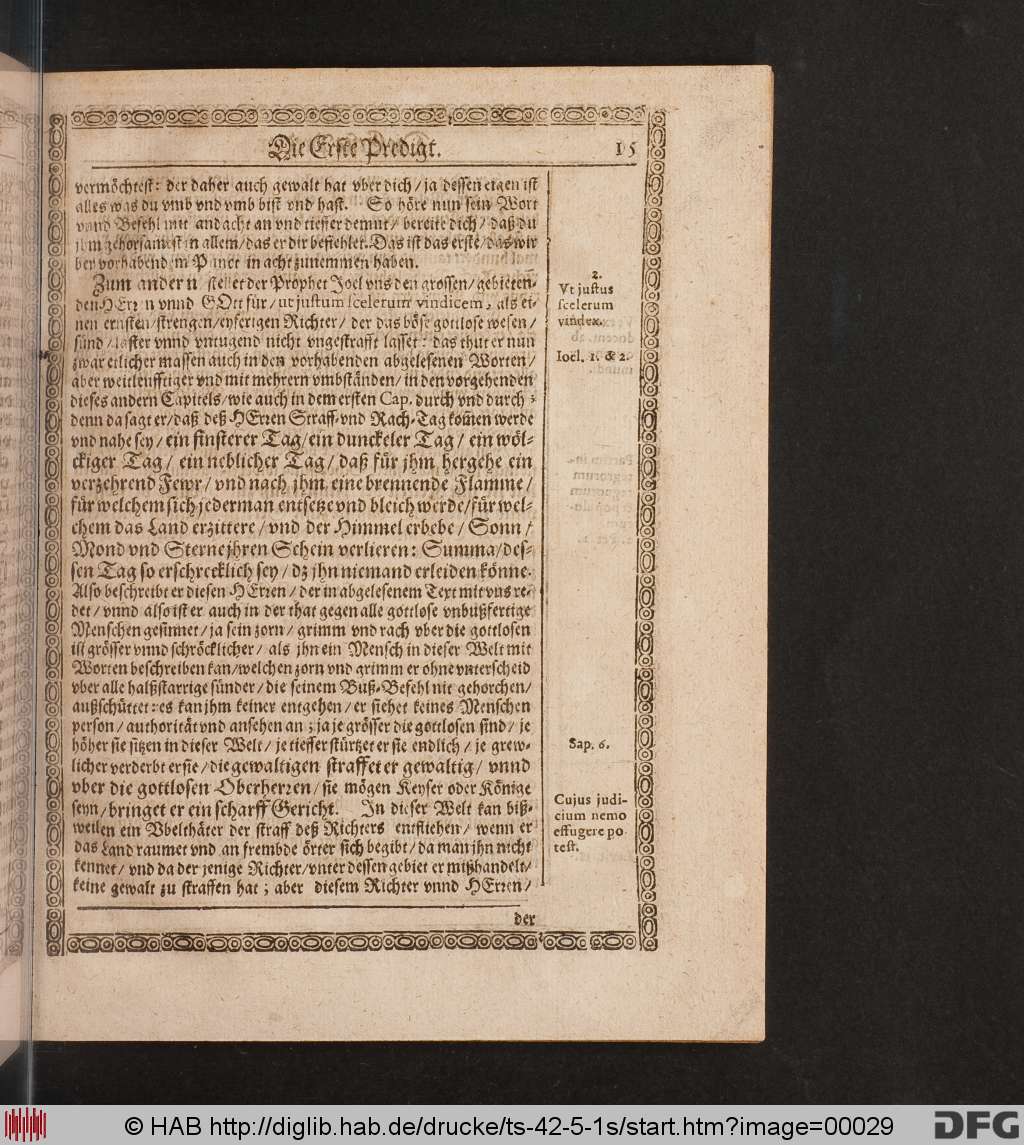 Die Erste Predigt.
15
vermöchtest: der daher auch gewalt hat vber dich / ja dessen eigen ist
alles was du vmb vnd vmb bist vnd hast. So höre nun sein Wort
vnnd Befehl mit andacht an vnd tieffer demut / bereite dich / daß du
jhm gehorsamest in allem / das er dir beffehlet. Das ist das erste / das wir
bey vorhabendem Punct in acht zunemmen haben.
Zum andern stellet der Prophet Joel vns den grossen / gebieten-
den HErrn vnnd GOtt für / ut justum scelerum vindicem, als ei-
nen ernsten / strengen / eyferigen Richter / der das böse gottlose wesen /
sünd / laster vnnd vntugend nicht vngestrafft lasset: das thut er nun
zwar etlicher massen auch in den vorhabenden abgelesenen Worten /
aber weitleufftiger vnd mit mehrern vmbständen / in den vorgehenden
dieses andern Capitels / wie auch in dem ersten Cap. durch vnd durch ;
denn da sagt er / daß deß HErren Straff- vnd Rach-Tag kom̃en werde
vnd nahe sey / ein finsterer Tag / ein dunckeler Tag / ein wöl-
ckiger Tag / ein neblicher Tag / daß für jhm hergehe ein
verzehrend Fewr / vnd nach jhm eine brennende Flamme /
für welchem sich jederman entsetze vnd bleich werde / für wel-
chem das Land erzittere / vnd der Himmel erbebe / Sonn /
Mond vnd Sterne jhren Schein verlieren: Summa / des-
sen Tag so erschrecklich sey / dz jhn niemand erleiden könne.
Also beschreibt er diesen HErren / der in abgelesenem Text mit vns re-
det / vnnd also ist er auch in der that gegen alle gottlose vnbußfertige
Menschen gesinnet / ja sein zorn / grimm vnd rach vber die gottlosen
ist grösser vnnd schröcklicher / als jhn ein Mensch in dieser Welt mit
Worten beschreiben kan / welchen zorn vnd grimm er ohne vnterscheid
vber alle halßstarrige sünder / die seinem Buß-Befehl nit gehorchen /
außschüttet: es kan jhm keiner entgehen / er siehet keines Menschen
person / authorität vnd ansehen an ; ja je grösser die gottlosen sind / je
höher sie sitzen in dieser Welt / je tieffer stürtzet er sie endlich / je grew-
licher verderbt er sie / die gewaltigen straffet er gewaltig / vnnd
vber die gottlosen Oberherren / sie mögen Keyser oder Könige
seyn / bringet er ein scharff Gericht. In dieser Welt kan biß-
weilen ein Vbelthäter der straff deß Richters entfliehen / wenn er
das Land raumet vnd an frembde örter sich begibt / da man jhn nicht
kennet / vnd da der jenige Richter / vnter dessen gebiet er mißhandelt /
keine gewalt zu straffen hat ; aber diesem Richter vnnd HErren /
der
2.
Vt justus
scelerum
vindex.
Ioel. 1. & 2.
Sap. 6.
Cujus judi-
cium nemo
effugere po
test.
© HAB http://diglib.hab.de/drucke/ts-42-5-1s/start.htm?image=00029
DFG